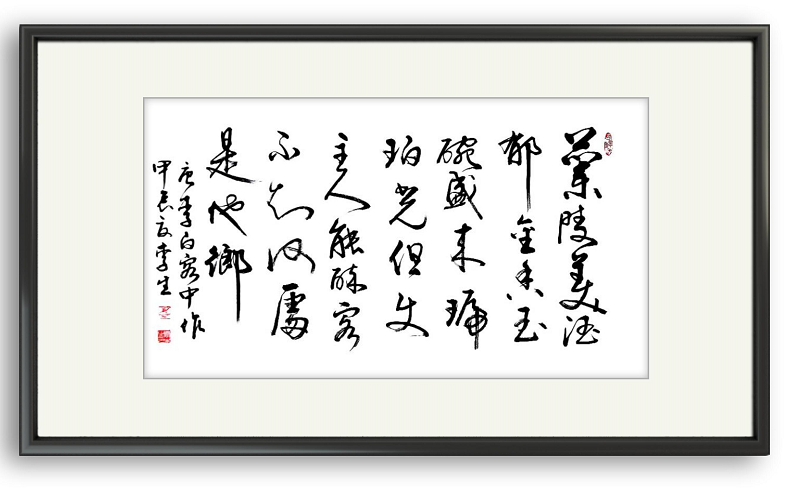 蘭陵美酒
郁金香玉
碗盛来琥
珀光但使
主人能醉客
不知何處
是他鄉
唐李白客中作
甲辰夏李生